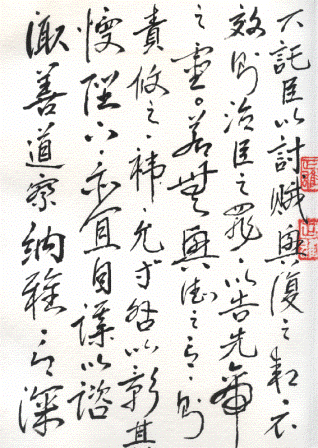 下託臣以討賊興復之效不
效則治臣之罪以告先帝
之靈。若無興德之言則
責攸之禕允等咎以彰其
慢陛下亦宜自謀以諮
諏善道察納雅言深